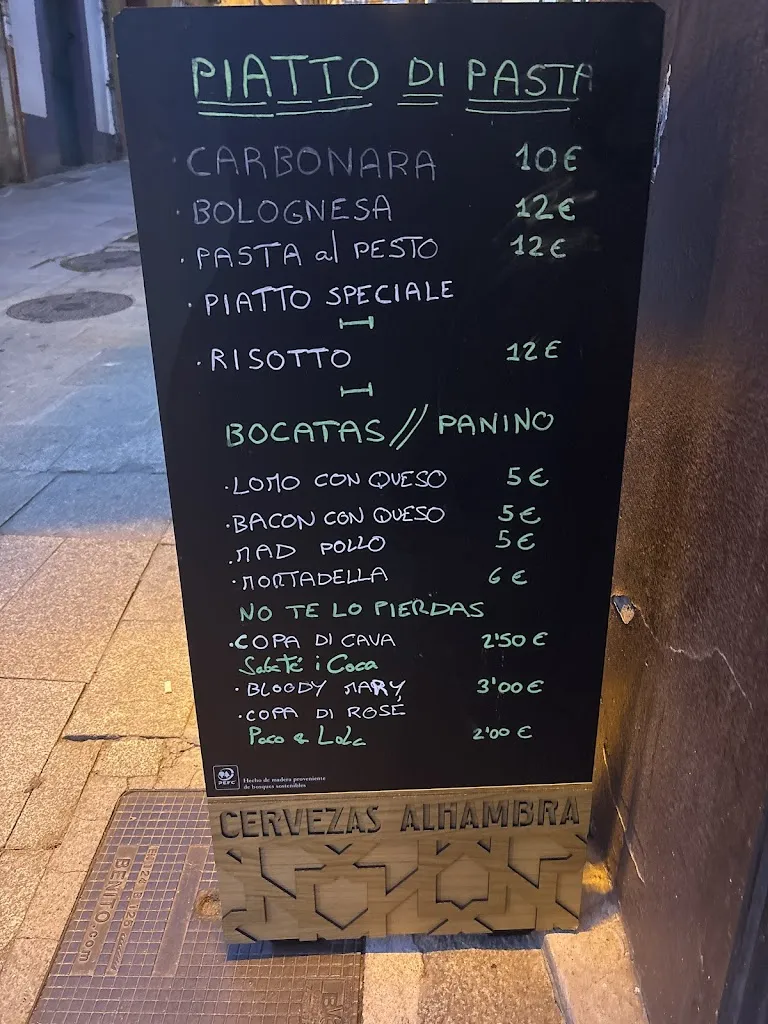 PIATTO DI PASTA
· CARBONARA 10€
· BOLOGNESA 12€
· PASTA al PESTO 12€
· PIATTO SPECIALE
· RISOTTO 12€
BOCATAS // PANINO
· LOMO CON QUESO 5€
· BACON CON QUESO 5€
· MAD POLLO 5€
· MORTADELLA 6€
NO TE LO PIERDAS
· COPA DI CAVA 2'50€
Sabaté i Coca
· BLOODY MARY 3'00€
· COPA DI ROSÉ
Paco & Lola 2'00€
PEFC
Hecho de madera proveniente
de bosques sostenibles
CERVEZAS ALHAMBRA
BENITO.com